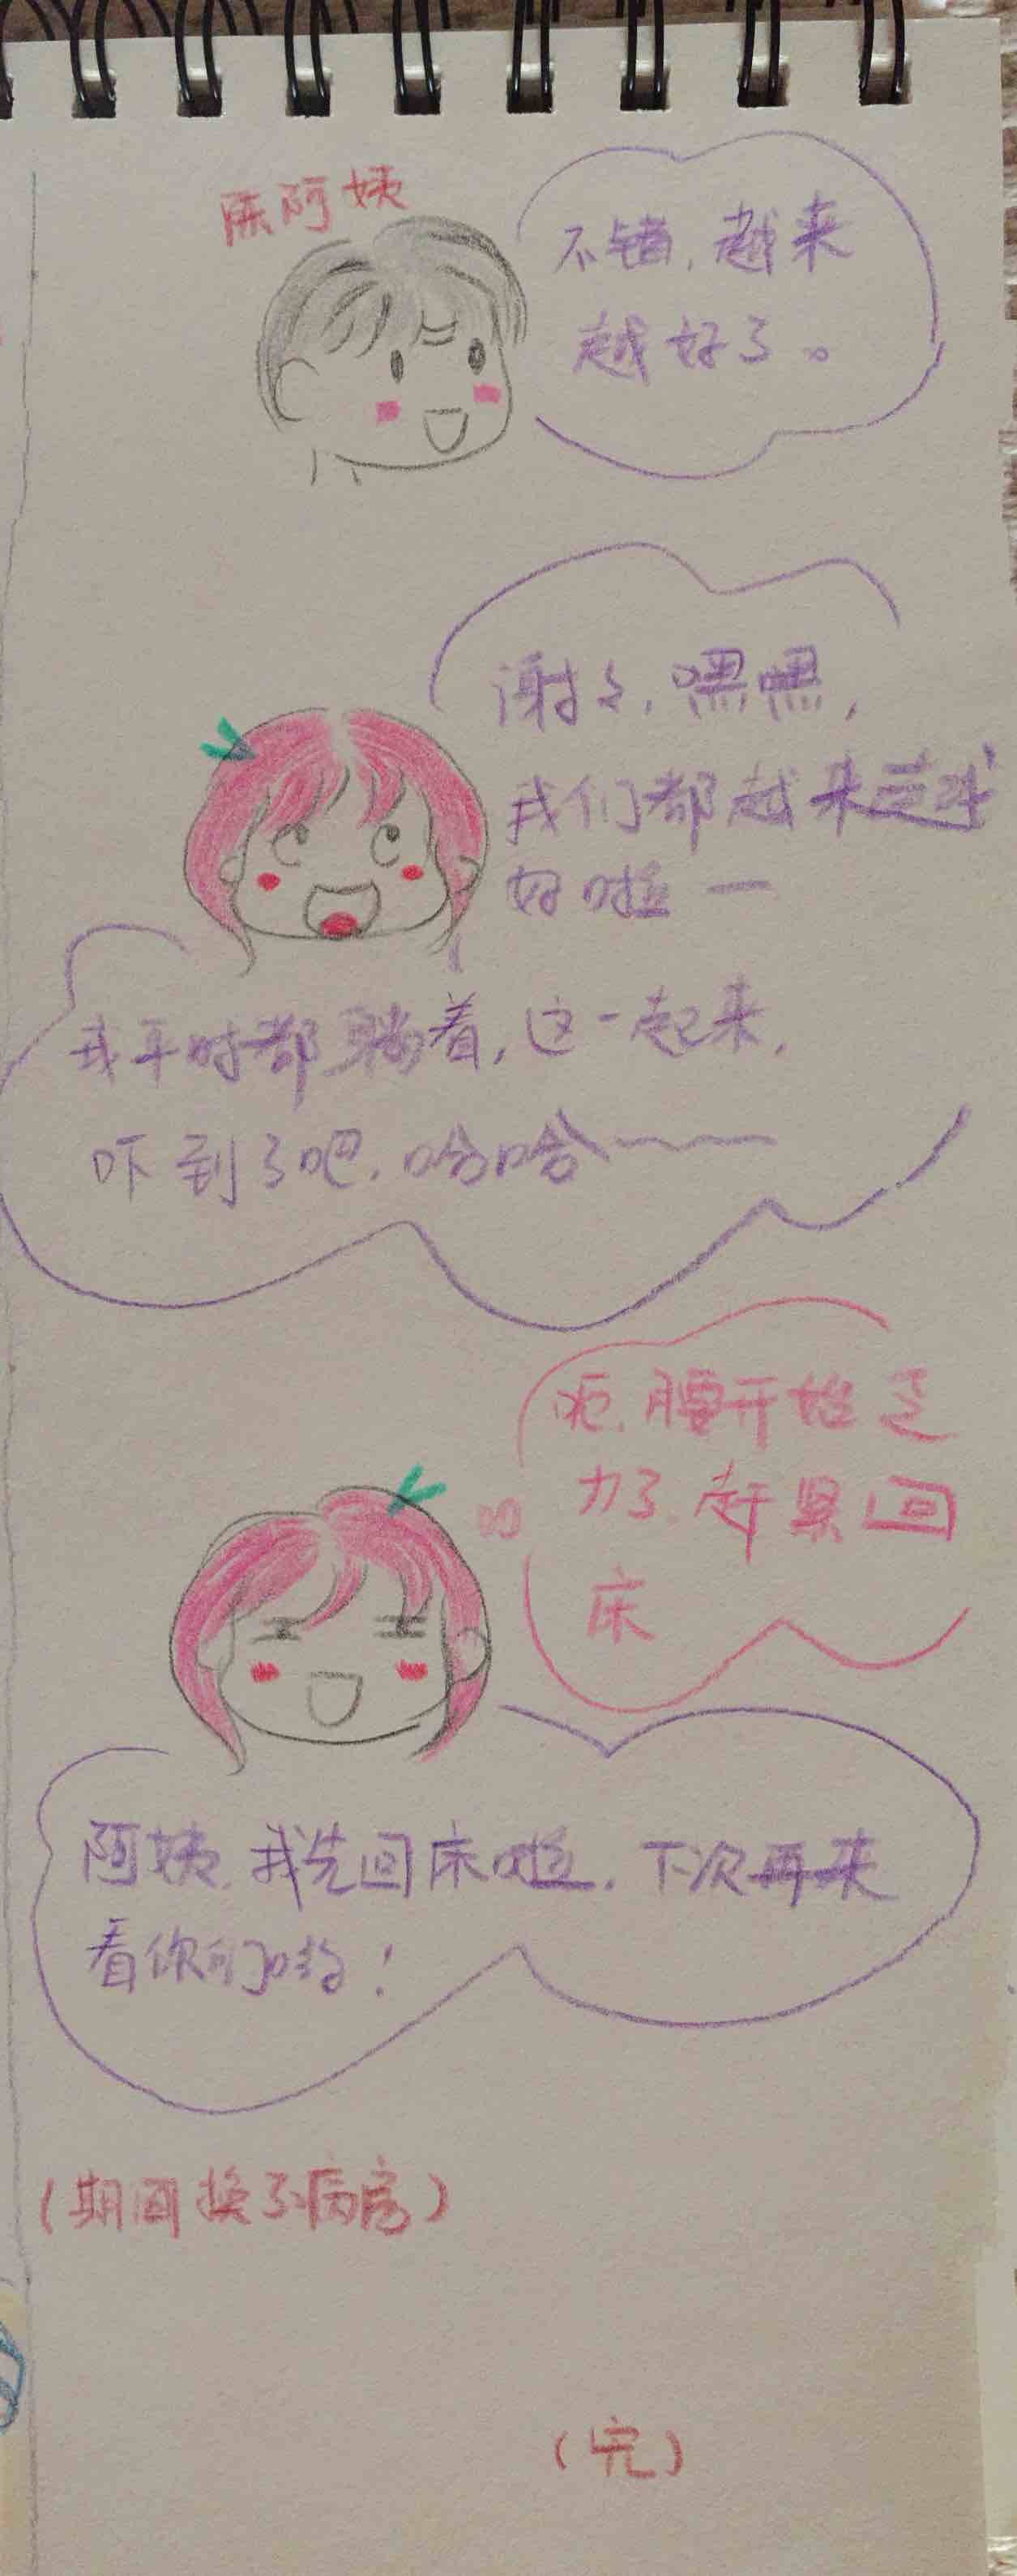 陈阿姨
不错，越来
越好了。
谢谢，嘿嘿，
我们都越来越
好啦一
我平时都躺着，这一起来，
吓到了吧，哈哈～～
呃，腰开始乏
力了，赶紧回
床
阿姨，我先回床啦，下次再来
看你们哟！
（期间换了病房）
（完）